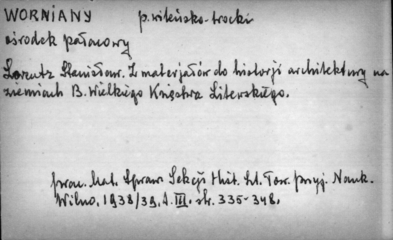 WORNIANY p. wileńsko-trocki
ośrodek pałacowy
Lorentz Stanisław. Z materjałów do historji architektury na
ziemiach B. Wielkiego Księstwa Litewskiego.
Prac. Mat. Spraw. Sekcji Hist. Szt. Tow. Przyj. Nauk.
Wilno, 1938/39, t. III. str. 335-348.